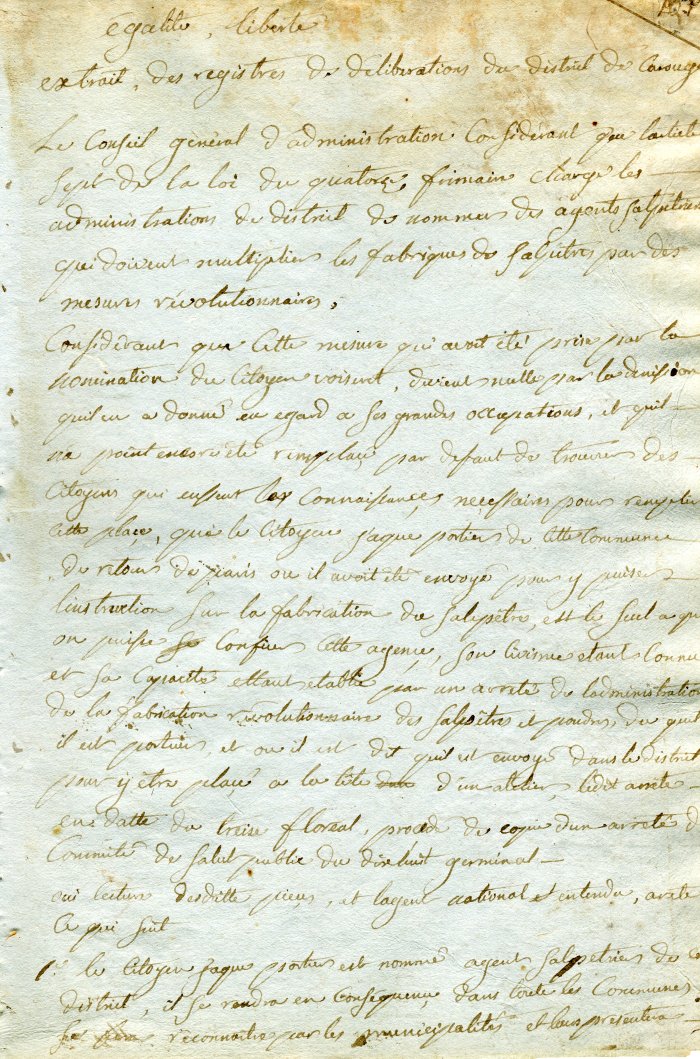 egalité, liberté
extrait, des registres de deliberations du district de Carouge
Le Conseil général d'administration Considérant que larticle
sept de la loi du quatorze, frimaire charge les
administrations de district de nommer des agents salpetriers
qui doivent multiplier les fabriques de salpêtres par des
mesures révolutionnaires,
Considérant que cette mesure qui avoit été prise par la
nomination du Citoyen voisent, devient nulle par la demission
quil en a donné eu egard a ses grandes occupations, et quil
na point encore été remplacé par defaut de trouver des
Citoyens qui eussent les connaissances necessaires pour remplir
cette place, que le Citoyen jaque portier de cette Commune
de retour de paris ou il avoit été envoyé pour y puiser
linstruction sur la fabrication du salpêtre, est le seul a qui
on puisse Confier cette agence, son civisme etant Connu
et sa Capacité ettant etablie par un arreté de ladministration
de la fabrication révolutionnaire des salpêtres et poudres, du quel
il est porteur, et ou il est dit quil est envoyé dans le district
pour y être placé a la tête d'un atelier, ledit arreté
en datte du treise floreal, procede de copie dun arreté du
Commité de salut public du dixhuit germinal
oui lecture desditte pieces, et lagent national entendu, arrete
Ce qui suit
1° le Citoyen jaque portier est nommé agent salpetrier de ce
district, il se rendra en Conséquence dans toute les Communes,
reconnoitre par les municipalités et leur presentera